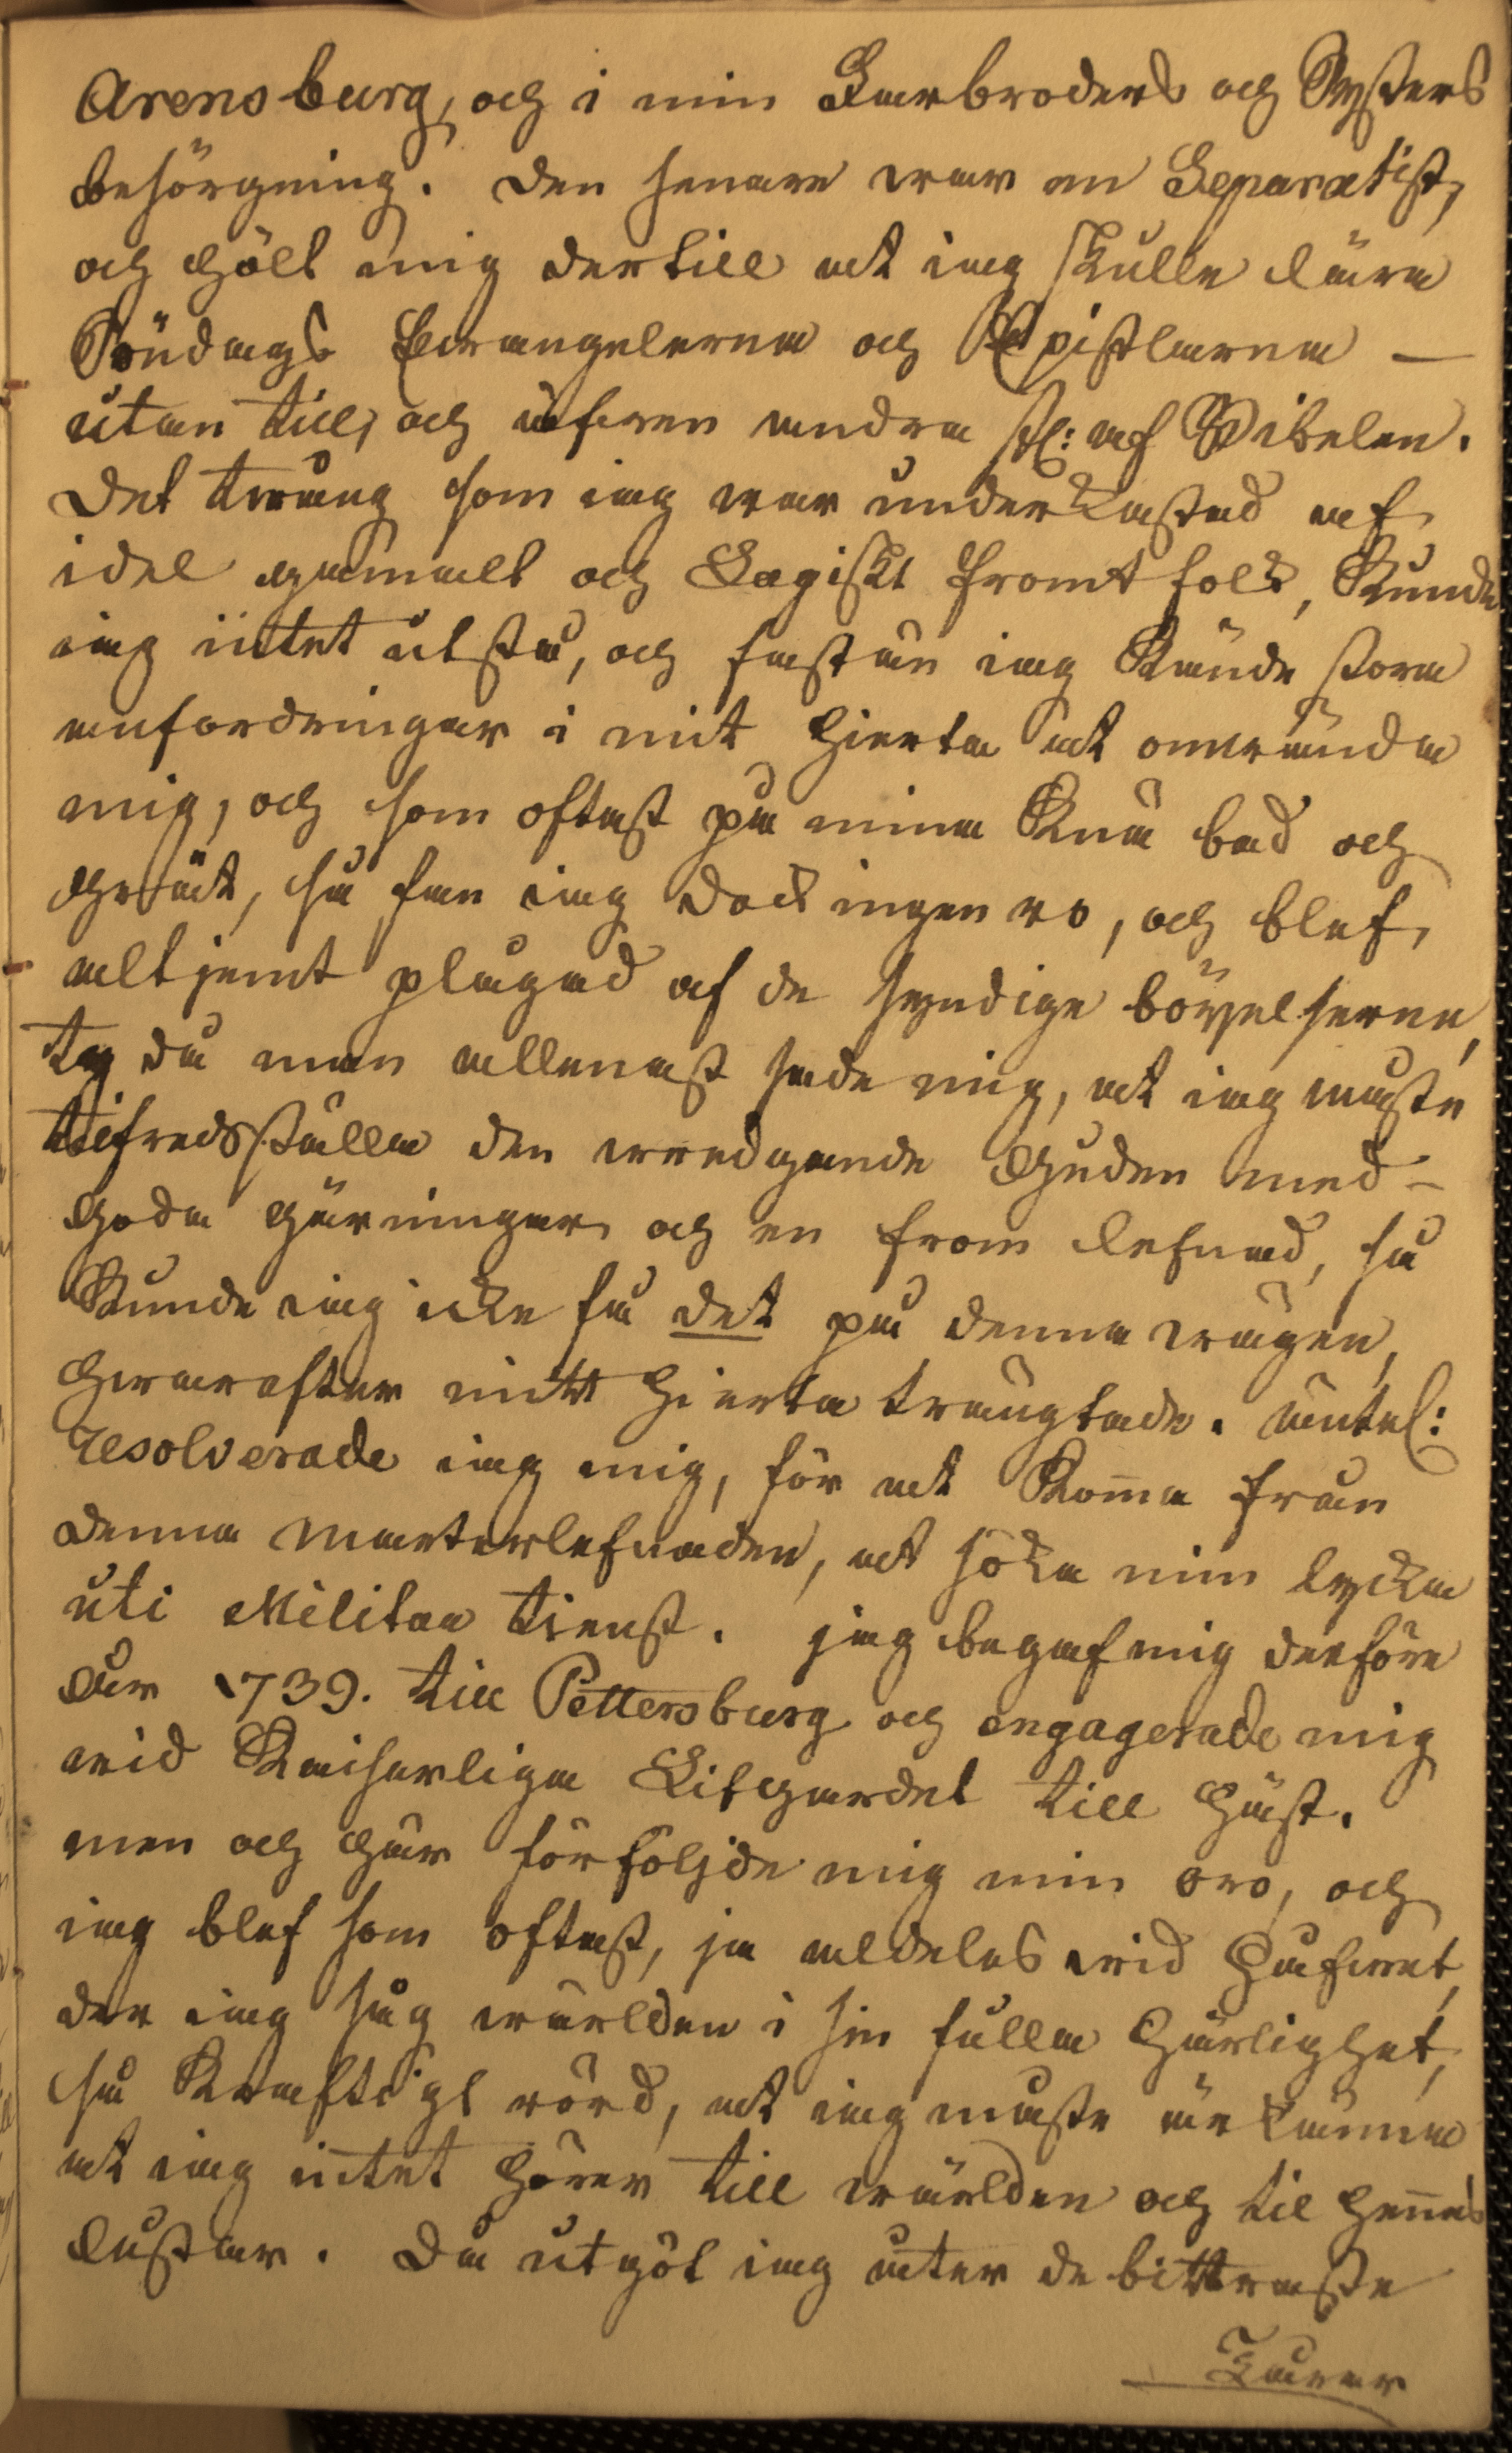 Arensburg, och i min Farbroders och Systers
besörgning. Den senare war en Separatist,
och höll mig dertill at iag skulle lära
Söndags Evangelierna och Epistlarna —
utan till, och äfwen andra st: af Bibelen.
Det twång som iag war underkastad af
idel gammalt och Lagiskt fromt folk, kunde
iag intet utstå, och fastän iag kände stora
anfordringar i mit hierta at omwända
mig, och som oftast på mina knä bad och
gråt, så fan iag dock ingen ro, och blef
altjemt plågad af de syndige böjelserne,
ty då man allenast sade mig, at iag måste
tilfredsställa den wredgande Guden med
goda gärningar och en from lefnad, så
kunde iag icke få det på denna wägen,
hwarefter mitt hierta trängtade. äntel:
resolverade iag mig, för at komma från
denna marterlefnaden, at söka min lycka
uti Militaa tienst. jag begaf mig derföre
År 1739. till Pettersburg och engagerade mig
wid Kaiserliga Lifgardet till häst.
men och här förföljde mig min oro, och
iag blef som oftast, ja aldeles wid hafwet,
der iag såg wärlden i sin fulla härlighet,
så kraftigt rörd, at iag måste erkänna
at iag intet hörer till wärlden och til hennes
lustar. Då utgöt iag åter de bittraste
Tårar